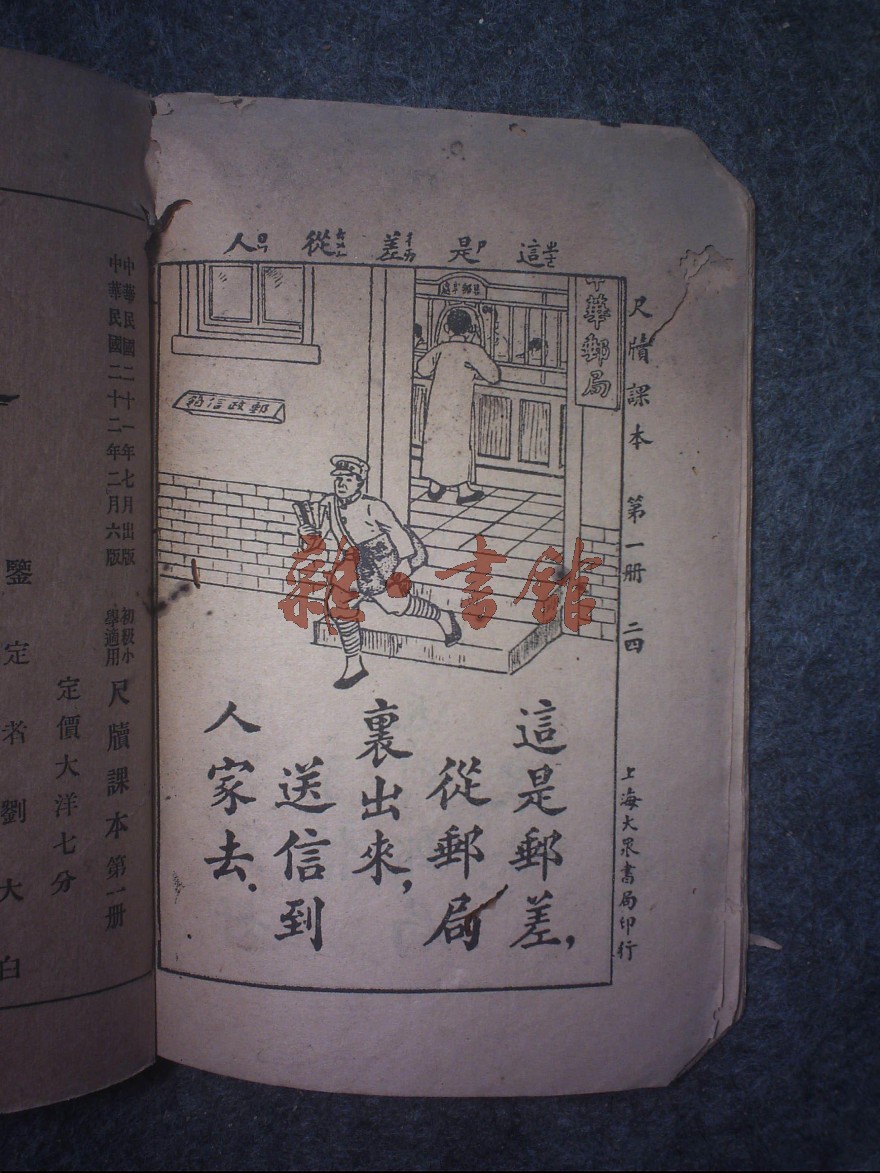 人 從 差 是 這
中華郵局
郵政信箱
尺牘課本 第一冊 二四
上海大眾書局印行
這是郵差，
從郵局
裏出來，
送信到
人家去．
雜·書館
中華民國二十一年七月出版
中華民國二十二年二月六版
初級小
學適用
尺牘課本第一冊
定價大洋七分
鑒定者劉大白